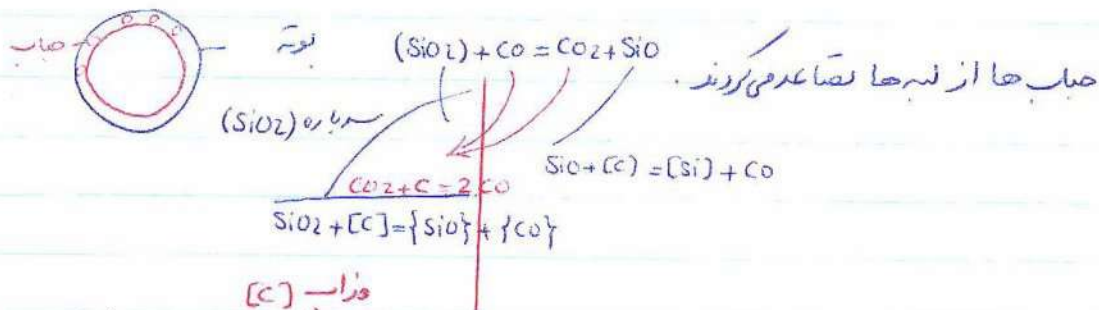 حباب
بوته
(SiO2) + CO = CO2 + SiO
حباب ها از لبه ها تصاعد می کردند.
سرباره (SiO2)
SiO + [C] = [Si] + CO
CO2 + C = 2CO
SiO2 + [C] = {SiO} + {CO}
مذاب [C]